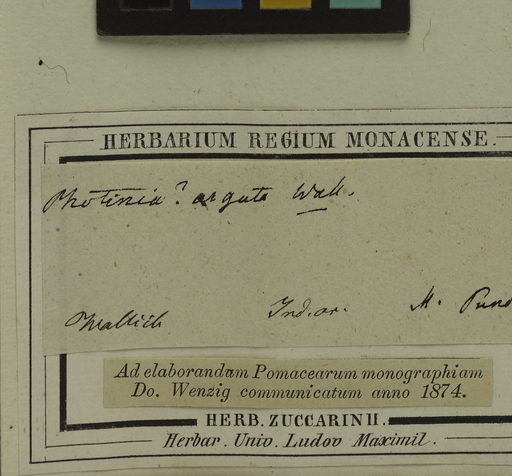 HERBARIUM REGIUM MONACENSE.
Photinia? arguta Wall.
Wallich Ind. or. M.
Ad elaborandum Pomacearum monographiam
Do. Wenzig communicatum anno 1874.
HERB. ZUCCARINII.
Herbar. Univ. Ludov Maximil.